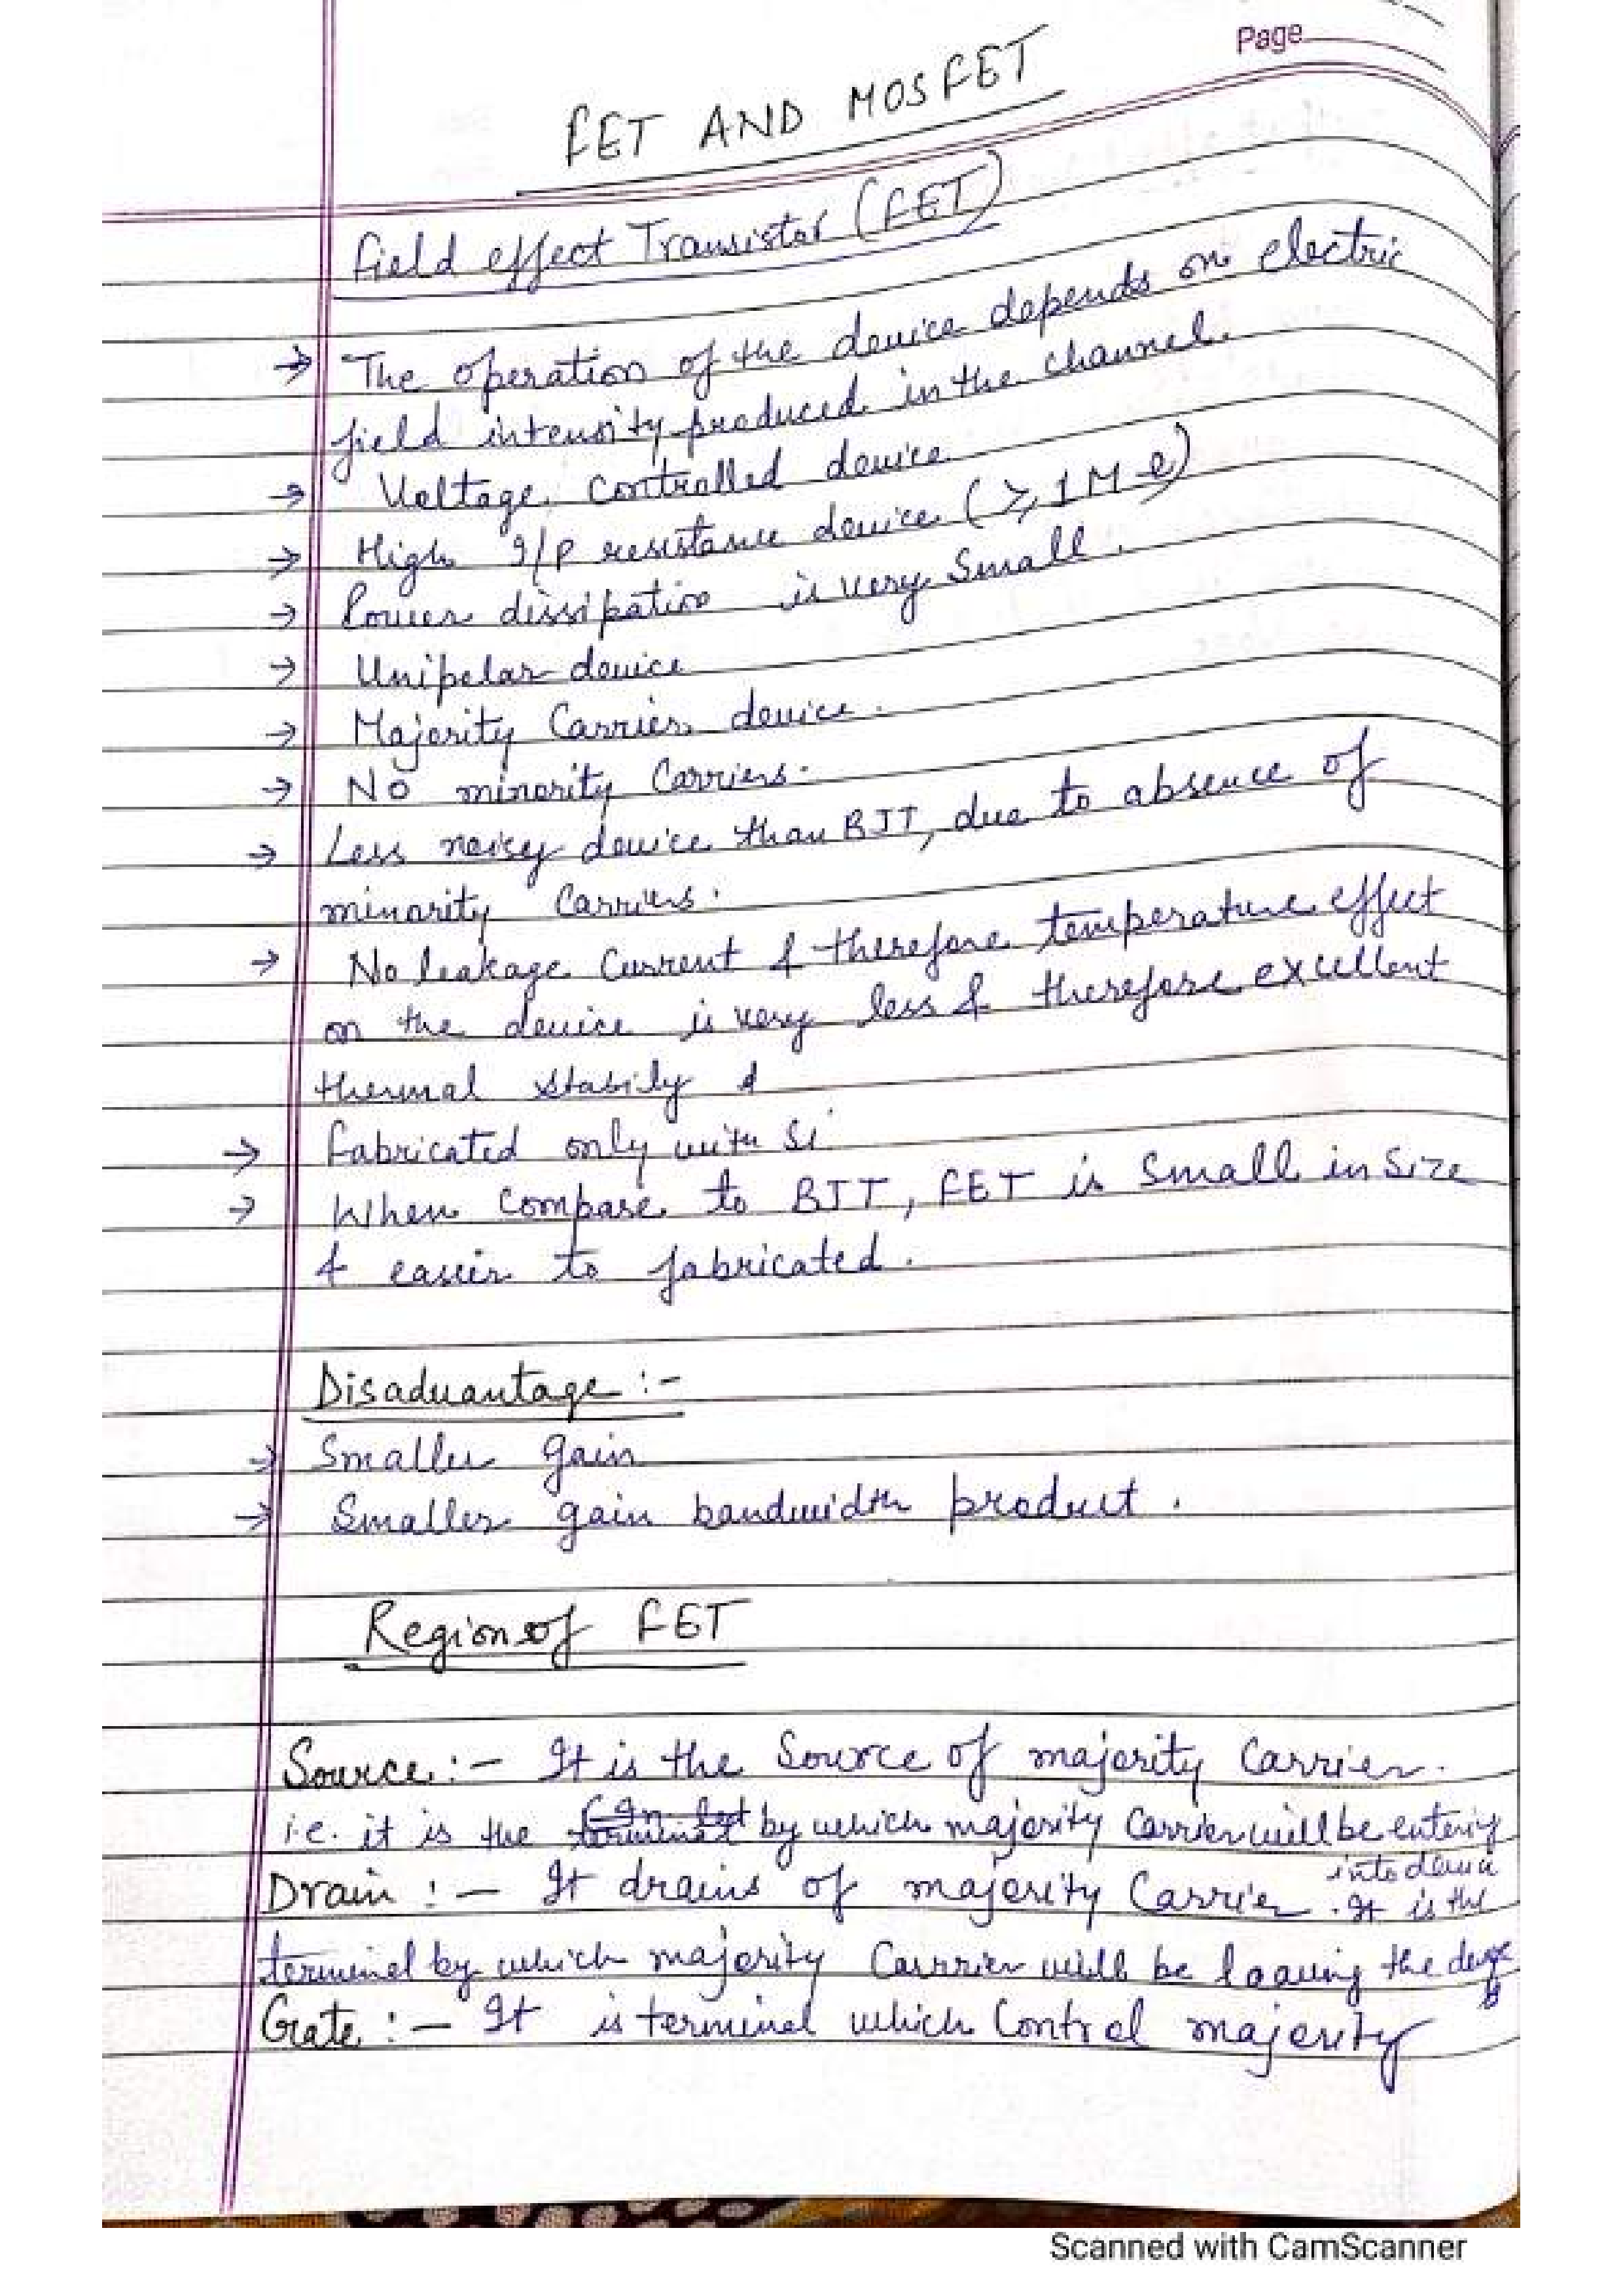 Page
FET AND MOSFET
Field effect Transistor (FET)
→ The operation of the device depends on electric
field intensity produced in the channel.
→ Voltage Controlled device
→ High I/P resistance device (≥ 1M Ω)
→ Power dissipation is very Small.
→ Unipolar device
→ Majority Carrier device.
→ No minority Carriers.
→ Less noisy device than BJT, due to absence of
minority Carriers.
→ No leakage Current & therefore temperature effect
on the device is very less & therefore excellent
thermal stabily &
→ Fabricated only with Si
→ When Compare to BJT, FET is Small in Size
& easier to fabricated.
Disadvantage :-
→ Smaller gain
→ Smaller gain bandwidth product.
Region of FET
Source :- It is the Source of majority Carrier.
i.e. it is the by which majority Carrier will be entering
into device
Drain :- It drains of majority Carrier. It is the
terminal by which majority Carrier will be leaving the device
Gate :- It is terminal which Control majority
Scanned with CamScanner